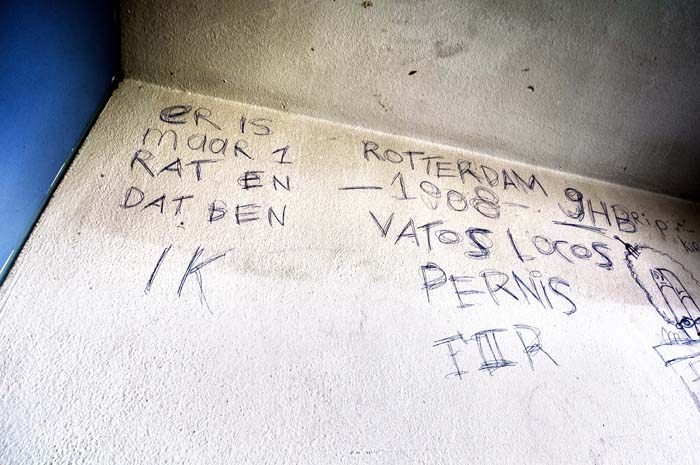 eR IS
maaR 1
RAT EN
DAT BEN
IK
ROTTERDAM
- 1908 -
VATOS LOCOS
PERNIS
FIIIR
9HB